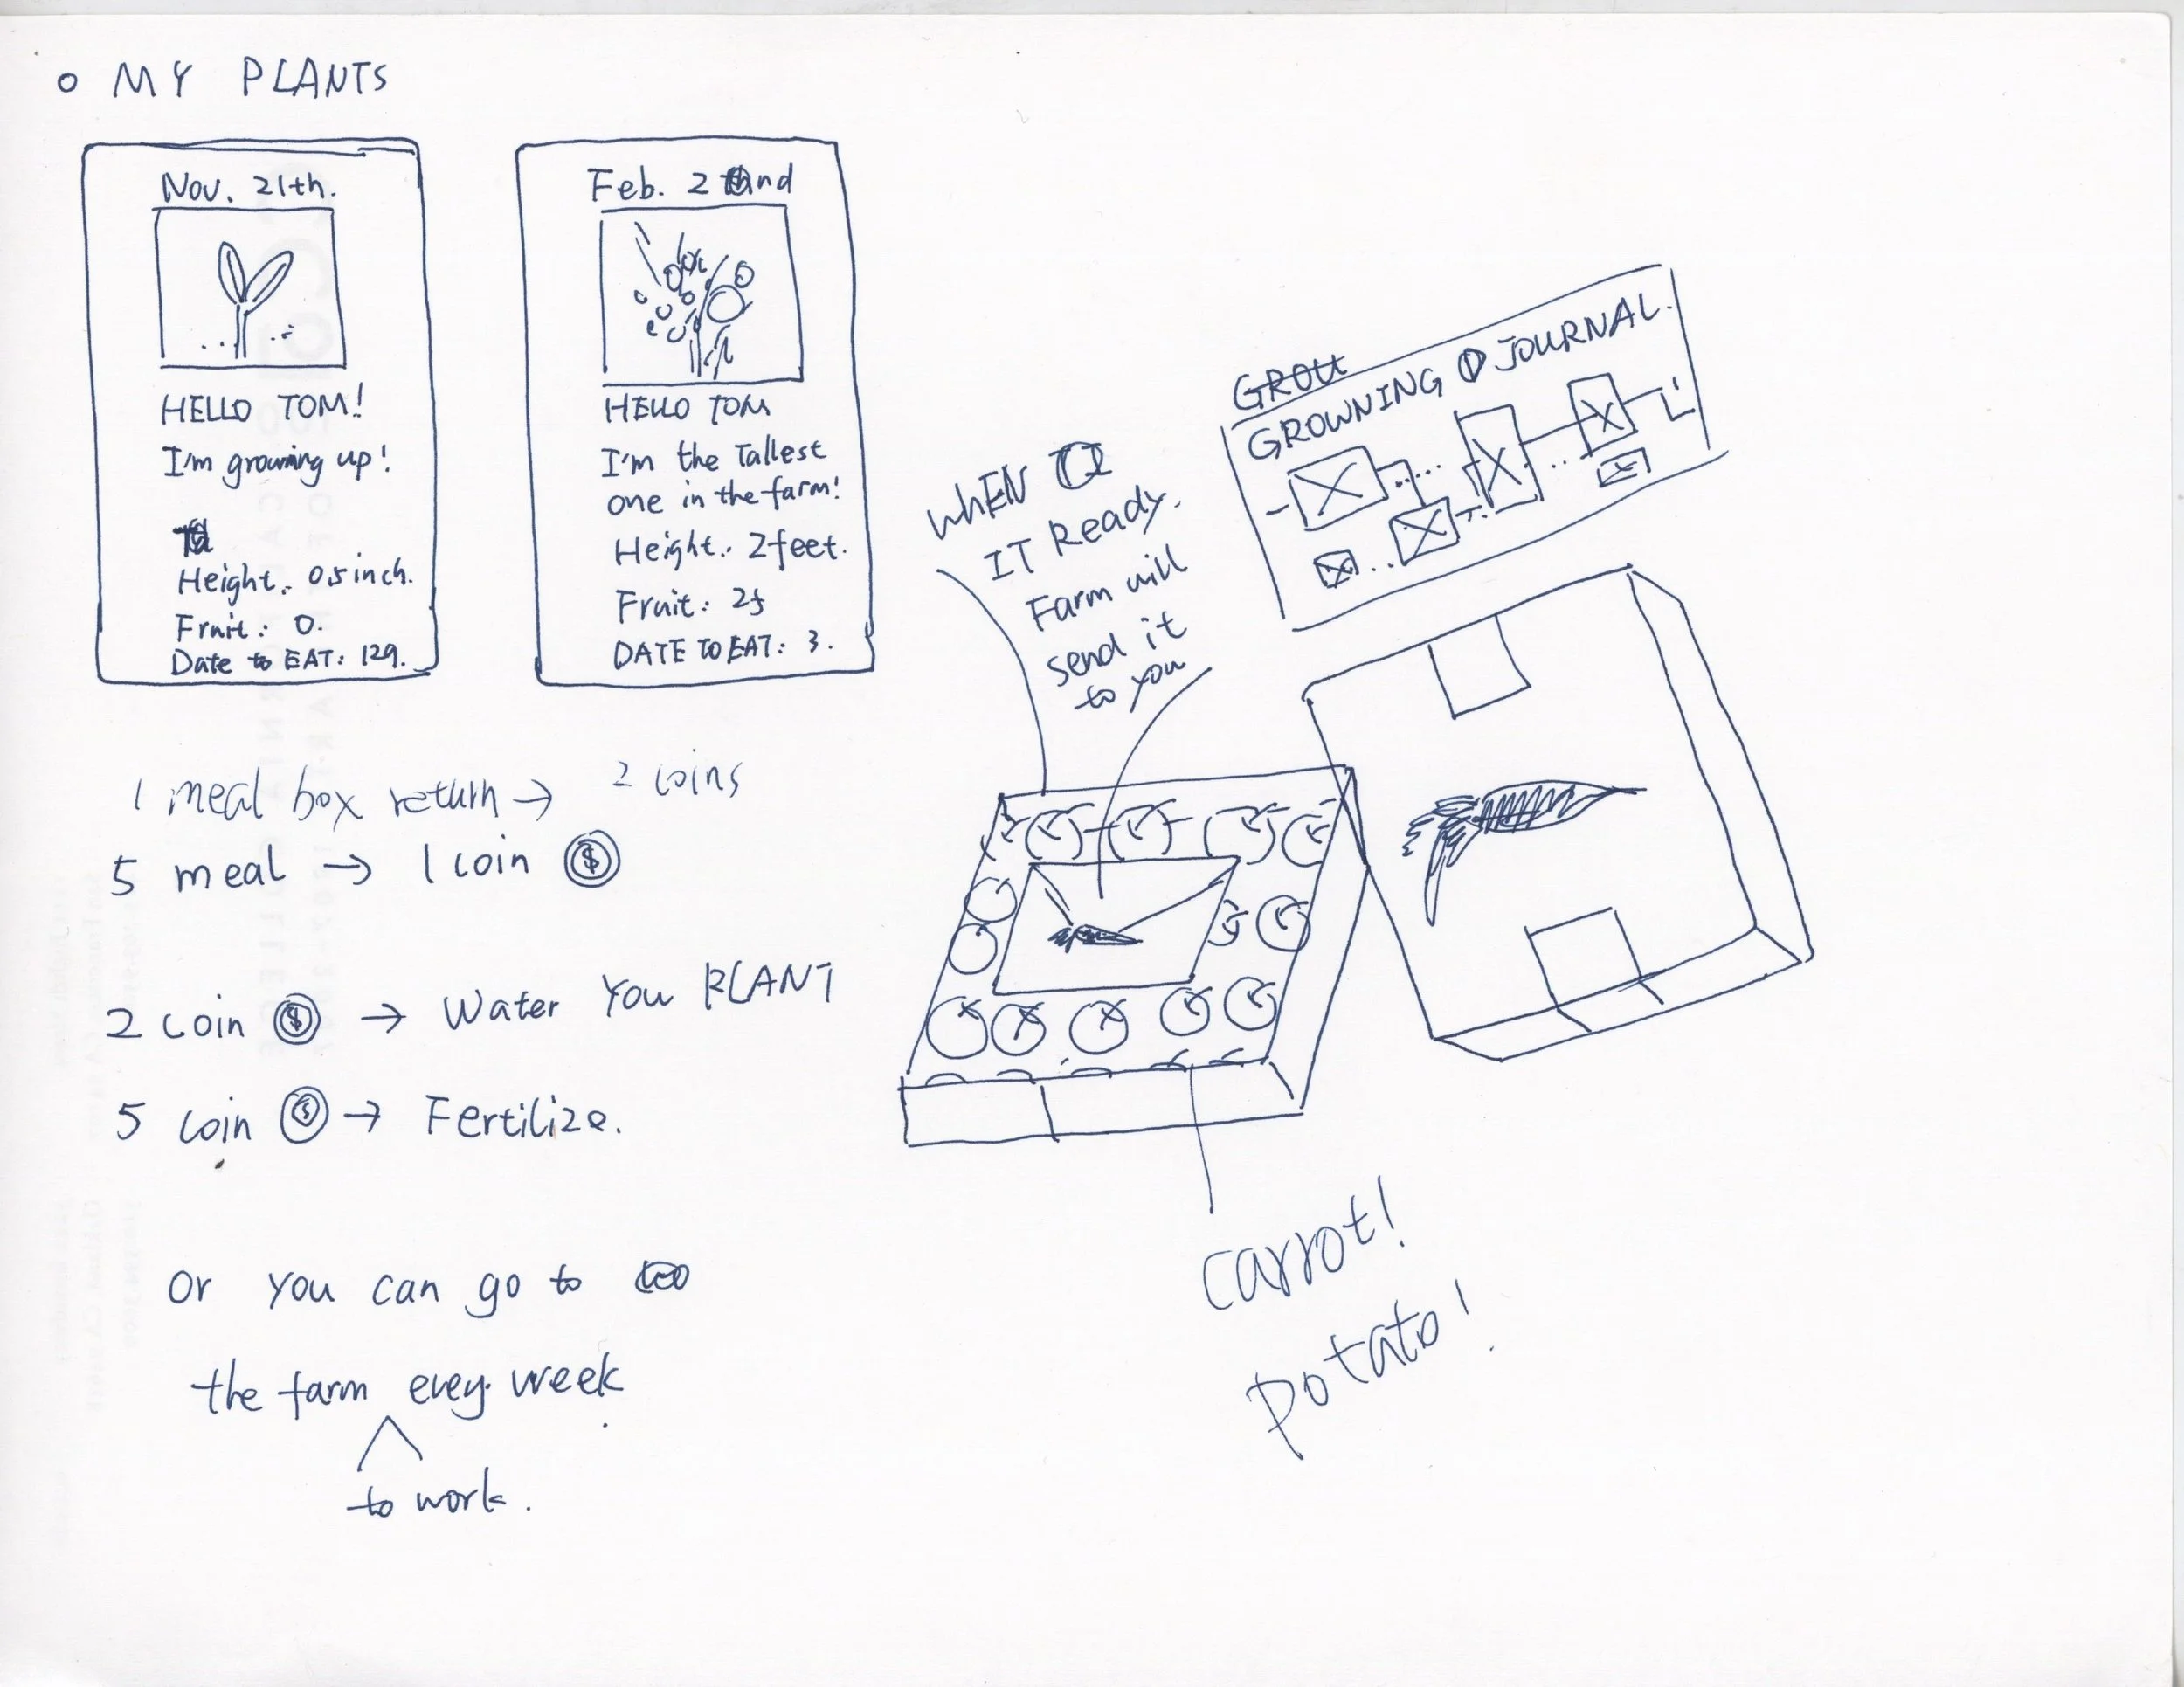 MY PLANTS
Nov. 21th.
HELLO TOM!
I'm growning up!
Height: 0.5 inch.
Fruit: 0.
Date to EAT: 129.
Feb. 2nd
HELLO TOM
I'm the Tallest
one in the farm!
Height: 2 feet.
Fruit: 25
DATE TO EAT: 3.
1 meal box return → 2 coins
5 meal → 1 coin $
2 coin $ → Water You PLANT
5 coin $ → Fertilize.
Or you can go to
the farm evey week
to work.
WhEN
IT Ready.
Farm will
send it
to you
GROW
GROWNING JOURNAL.
carrot!
potato!